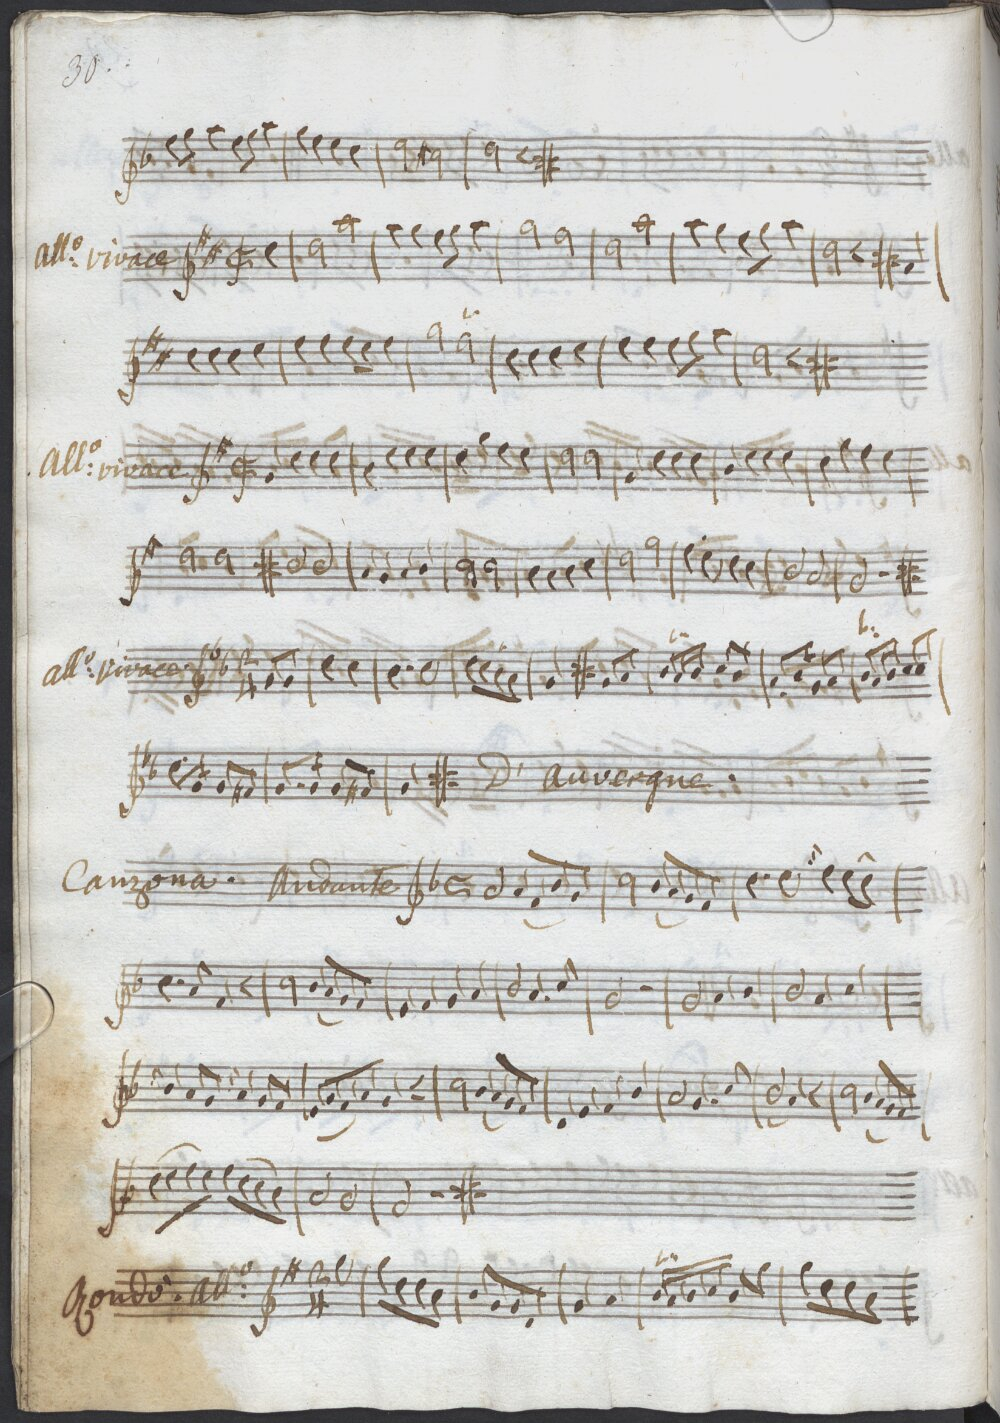 30.
all.o vivace
All.o vivace
all.o vivace
D' auvergne.
Canzona. Andante
Rondò. all.o